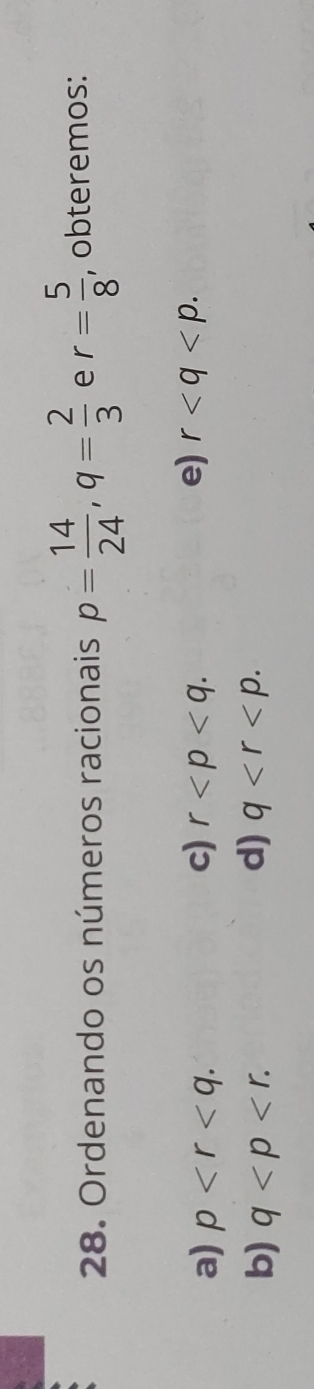 28. Ordenando os números racionais p = 14/24, q = 2/3 e r = 5/8, obteremos:
a) p < r < q.
b) q < p < r.
c) r < p < q.
d) q < r < p.
e) r < q < p.